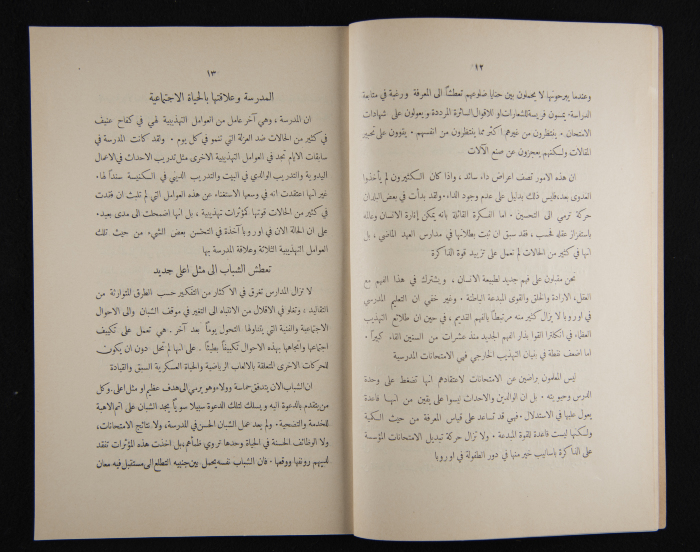 ١٢
وعندما يبرحونها لا يحملون بين حنايا ضلوعهم تعطشاً الى المعرفة ورغبة في متابعة
الدراسة. يمسون فريسة للشعارات او للاقوال السائرة المرددة ويعولون على شهادات
الامتحان. ينتظرون من غيرهم اكثر مما ينتظرون من انفسهم. يقوون على تحبير
المقالات ولكنهم يعجزون عن صنع الآلات
ان هذه الامور تصف اعراض داء سائد، واذا كان الكثيرون لم يأخذوا
العدوى بعد، فليس ذلك بدليل على عدم وجود الداء. ولقد بدأت في بعض البلدان
حركة ترمي الى التحسين. اما الفكرة القائلة بانه يمكن إنارة الانسان وعالمه
باستفزاز عقله فحسب، فقد سبق ان ثبت بطلانها في مدارس العهد الماضي، بل
انها في كثير من الحالات لم تعمل على تزييد قوة الذاكرة
نحن مقبلون على فهم جديد لطبيعة الانسان، ويشترك في هذا الفهم مع
العقل، الارادة والخلق والقوى المبدعة الباطنة. وغير خفي ان التعليم المدرسي
في اوروبا لا يزال كثير منه مرتبطاً بالفهم القديم، في حين ان طلائع التهذيب
العظماء في انكلترا اتوا بذار الفهم الجديد منذ عشرات من السنين القاء كبيراً.
اما اضعف نقطة في بنيان التهذيب الخارجي فهي الامتحانات المدرسية
ليس المعلمون راضين عن الامتحانات لاعتقادهم انها تضغط على وحدة
الدرس وحيويته. بل ان الوالدين والاحداث ليسوا على يقين من انها قاعدة
يعول عليها في الاستدلال. فهي قد تساعد على قياس المعرفة من حيث الكمية
ولكنها ليست قاعدة للقوة المبدعة. ولا تزال حركة تبديل الامتحانات المؤسسة
على الذاكرة باساليب خير منها في دور الطفولة في اوروبا
١٣
المدرسة وعلاقتها بالحياة الاجتماعية
ان المدرسة، وهي آخر عامل من العوامل التهذيبية لهي في كفاح عنيف
في كثير من الحالات ضد العزلة التي تنمو في كل يوم. ولقد كانت المدرسة في
سابقات الايام تجد في العوامل التهذيبية الاخرى مثل تدريب الاحداث في الاعمال
اليدوية والتدريب الوالدي في البيت والتدريب الديني في الكنيسة سنداً لها.
غير انها اعتقدت انه في وسعها الاستغناء عن هذه العوامل التي لم تلبث ان فقدت
في كثير من الحالات قوتها كمؤثرات تهذيبية، بل انها اضمحلت الى مدى بعيد.
على ان الحالة الان في اوروبا آخذة في التحسن بعض الشيء من حيث تلك
العوامل التهذيبية الثلاثة وعلاقة المدرسة بها
تعطش الشباب الى مثل اعلى جديد
لا تزال المدارس تغرق في الاكثار من التفكير حسب الطرق المتوارثة من
التقاليد، وتغلو في الاقلال من الانتباه الى التغير في موقف الشبان والى الاحوال
الاجتماعية والفنية التي يتناولها التحول يوماً بعد آخر. هي تعمل على تكييف
اجتماعها واتجاهها بهذه الاحوال تكييفاً بطيئاً. على انها لم تحل دون ان يكون
للحركات الاخرى المتعلقة بالالعاب الرياضية والحياة العسكرية السبق والقيادة
ان الشباب الان يتدفق حماسة وولاء وهو يرمي الى هدف عظيم او مثل اعلى. وكل
من يتقدم بالدعوة اليه ويسلك لتلك الدعوة سبيلا سوياً يجد الشبان على اتم الاهبة
للخدمة والتضحية. ولم يعد عمل الشبان الحسن في المدرسة، ولا نتائج الامتحانات،
ولا الوظائف الحسنة في الحياة وحدها تروي ظمأهم، بل اخذت هذه المؤثرات تفقد
لديهم رونقها ووقعها. فان الشباب نفسه يحمل بين جنبيه التطلع الى مستقبل فيه معان